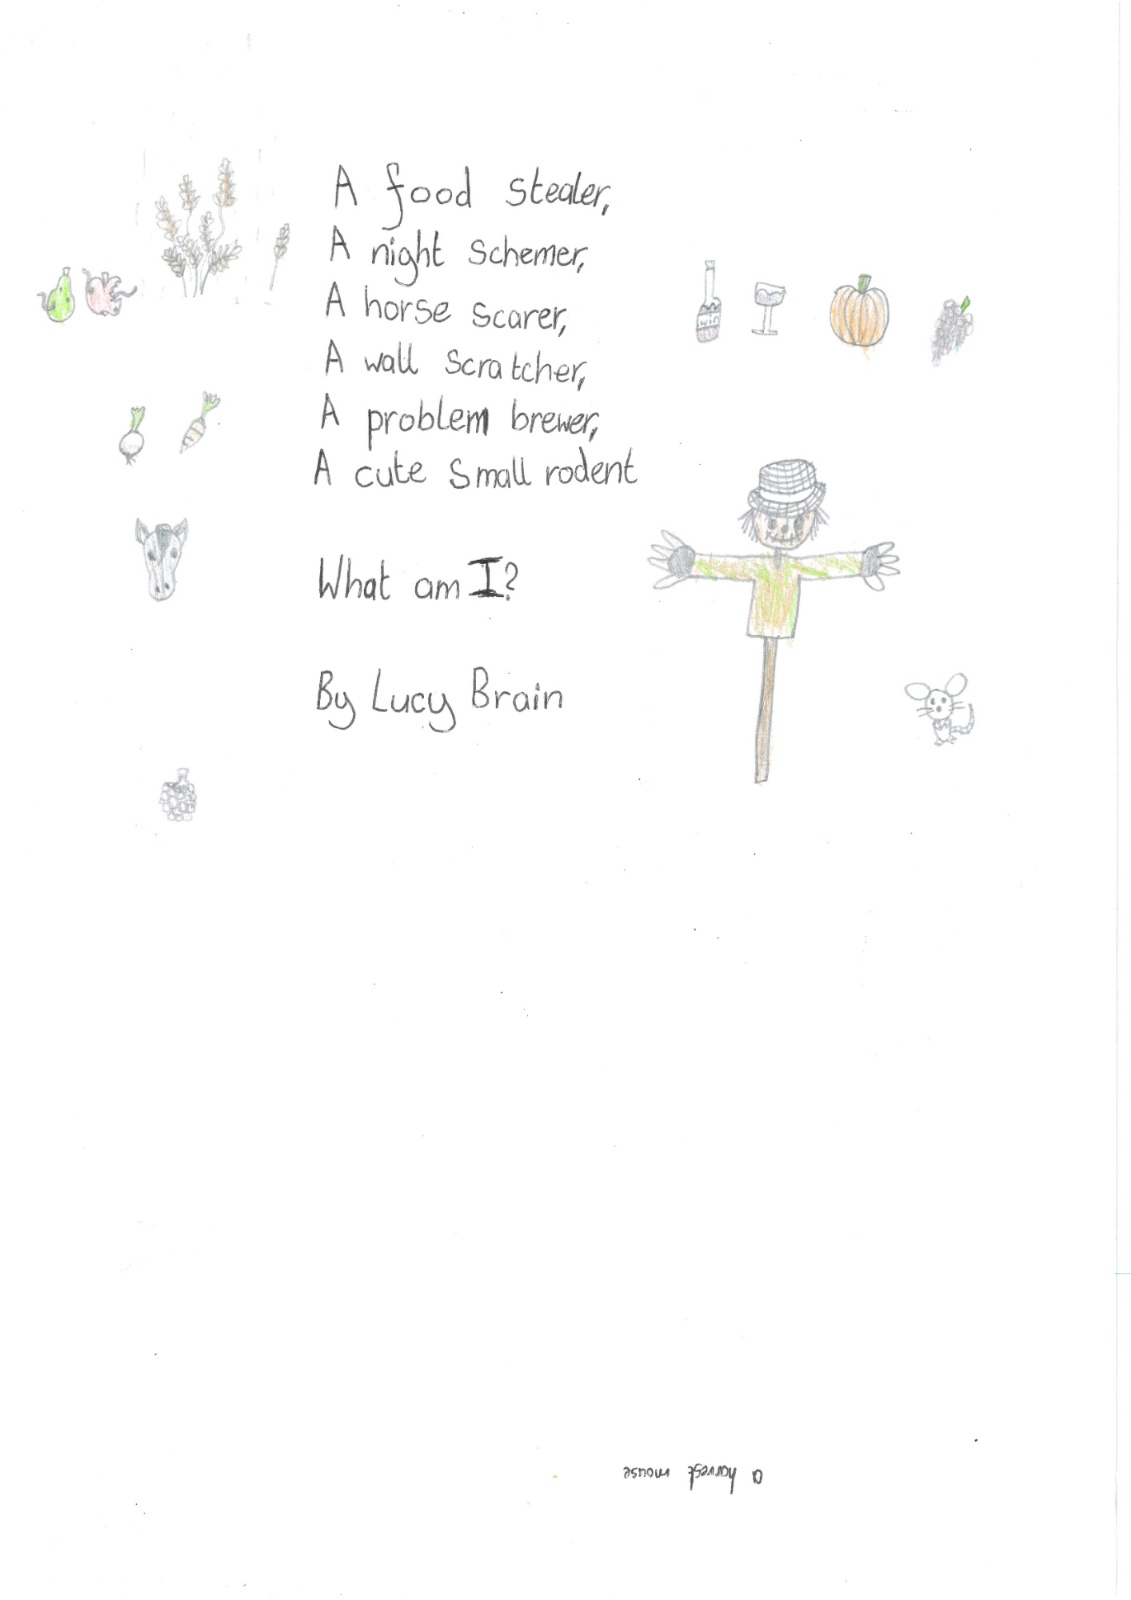 A food stealer,
A night schemer,
A horse scarer,
A wall scratcher,
A problem brewer,
A cute small rodent
What am I?
By Lucy Brain
a harvest mouse